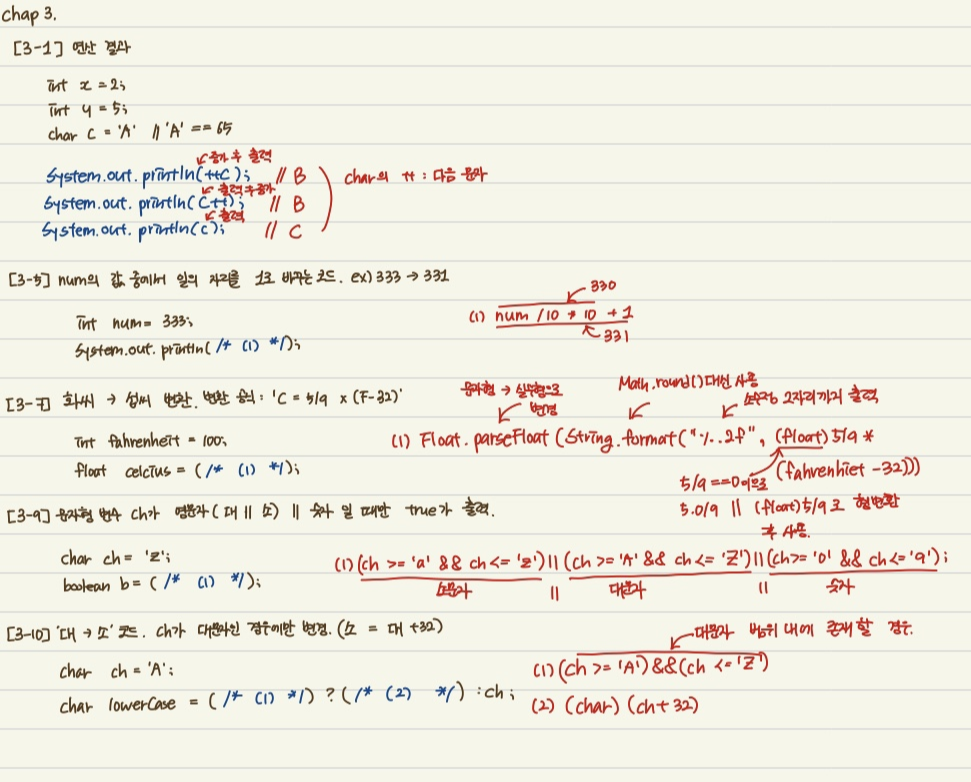 chap 3.
[3-1] 연산 결과
int x = 2;
int y = 5;
char c = 'A' // 'A' == 65
증가 후 출력
System.out.println(++c); // B
출력 후 증가
System.out.println(c++); // B
출력
System.out.println(c); // C
char의 ++ : 다음 문자
[3-5] num의 값 중에서 일의 자리를 1로 바꾸는 코드. ex) 333 → 331
int num = 333;
System.out.println( /* (1) */);
330
(1) num / 10 * 10 + 1
331
[3-7] 화씨 → 섭씨 변환. 변환 공식 : 'C = 5/9 x (F-32)'
int fahrenheit = 100;
float celcius = ( /* (1) */);
문자형 → 실수형으로
변경
Math.round() 대신 사용
소숫점 2자리까지 출력
(1) Float.parseFloat (String.format("%.2f", (float) 5/9 *
(fahrenhiet -32)))
5/9 ==0 이므로
5.0/9 || (float)5/9 로 형변환
후 사용.
[3-9] 문자형 변수 ch가 영문자 ( 대 || 소) || 숫자 일 때만 true가 출력.
char ch = 'z';
boolean b = ( /* (1) */);
(1) (ch >= 'a' && ch <= 'z') || (ch >= 'A' && ch <= 'Z') || (ch >= '0' && ch <= '9');
소문자 || 대문자 || 숫자
[3-10] '대 → 소' 코드. ch가 대문자인 경우에만 변경. (소 = 대 +32)
char ch = 'A';
char lowerCase = ( /* (1) */) ? ( /* (2) */) : ch;
대문자 범위 내에 존재 할 경우.
(1) (ch >= 'A') && (ch <= 'Z')
(2) (char) (ch + 32)